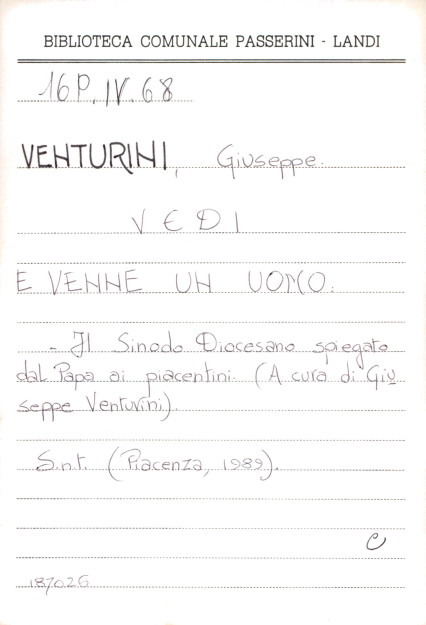 BIBLIOTECA COMUNALE PASSERINI - LANDI
16P.IV.68
VENTURINI, Giuseppe.
VEDI
E VENNE UN UOMO.
- Il Sinodo Diocesano spiegato
dal Papa ai piacentini. (A cura di Giu
seppe Venturini).
S.n.t. (Piacenza, 1989).
C
187026